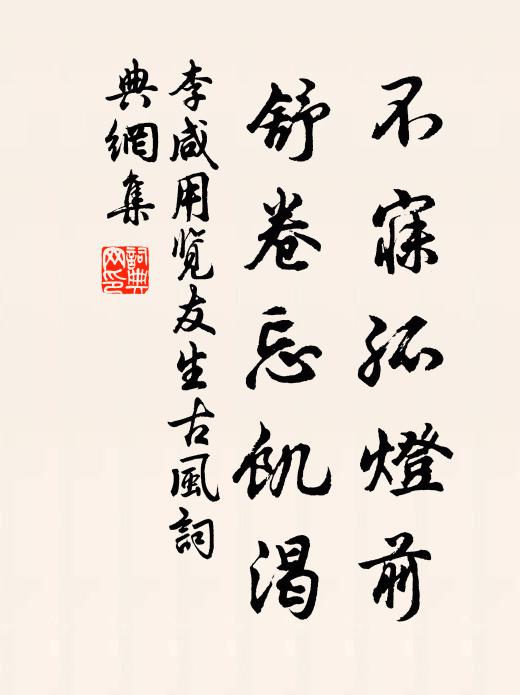 不寐孤燈前
舒卷忘飢渴
李咸用览友生古風詞
典網集
詞典
网印